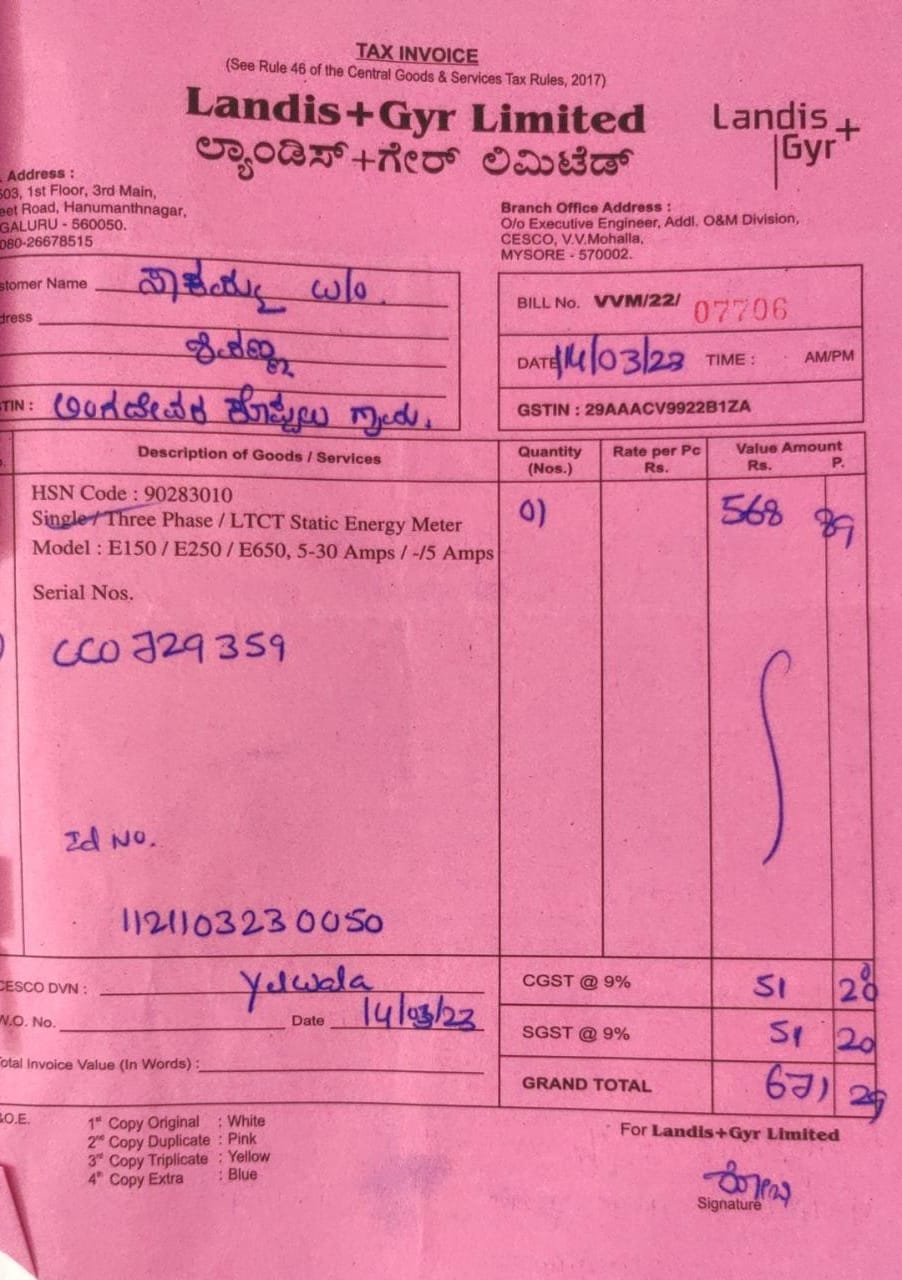 TAX INVOICE
(See Rule 46 of the Central Goods & Services Tax Rules, 2017)
Landis+Gyr Limited
ಲ್ಯಾಂಡಿಸ್+ಗೇರ್ ಲಿಮಿಟೆಡ್
Landis
Gyr+
Address :
503, 1st Floor, 3rd Main,
eet Road, Hanumanthnagar,
GALURU - 560050.
080-26678515
Branch Office Address :
O/o Executive Engineer, Addl. O&M Division,
CESCO, V.V.Mohalla,
MYSORE - 570002.
stomer Name
W/O.
dress
TIN :
BILL No. VVM/22/ 07706
DATE 14/03/23 TIME : AM/PM
GSTIN : 29AAACV9922B1ZA
Description of Goods / Services Quantity (Nos.) Rate per Pc Rs. Value Amount Rs. P.
HSN Code : 90283010
Single / Three Phase / LTCT Static Energy Meter 01 568 89
Model : E150 / E250 / E650, 5-30 Amps / -/5 Amps
Serial Nos.
CCO729359
Id No.
1121103230050
CESCO DVN : Yelwala
W.O. No. Date 14/03/23
otal Invoice Value (In Words) :
CGST @ 9% 51 20
SGST @ 9% 51 20
GRAND TOTAL 671 29
.O.E.
1st Copy Original : White
2nd Copy Duplicate : Pink
3rd Copy Triplicate : Yellow
4th Copy Extra : Blue
For Landis+Gyr Limited
Signature